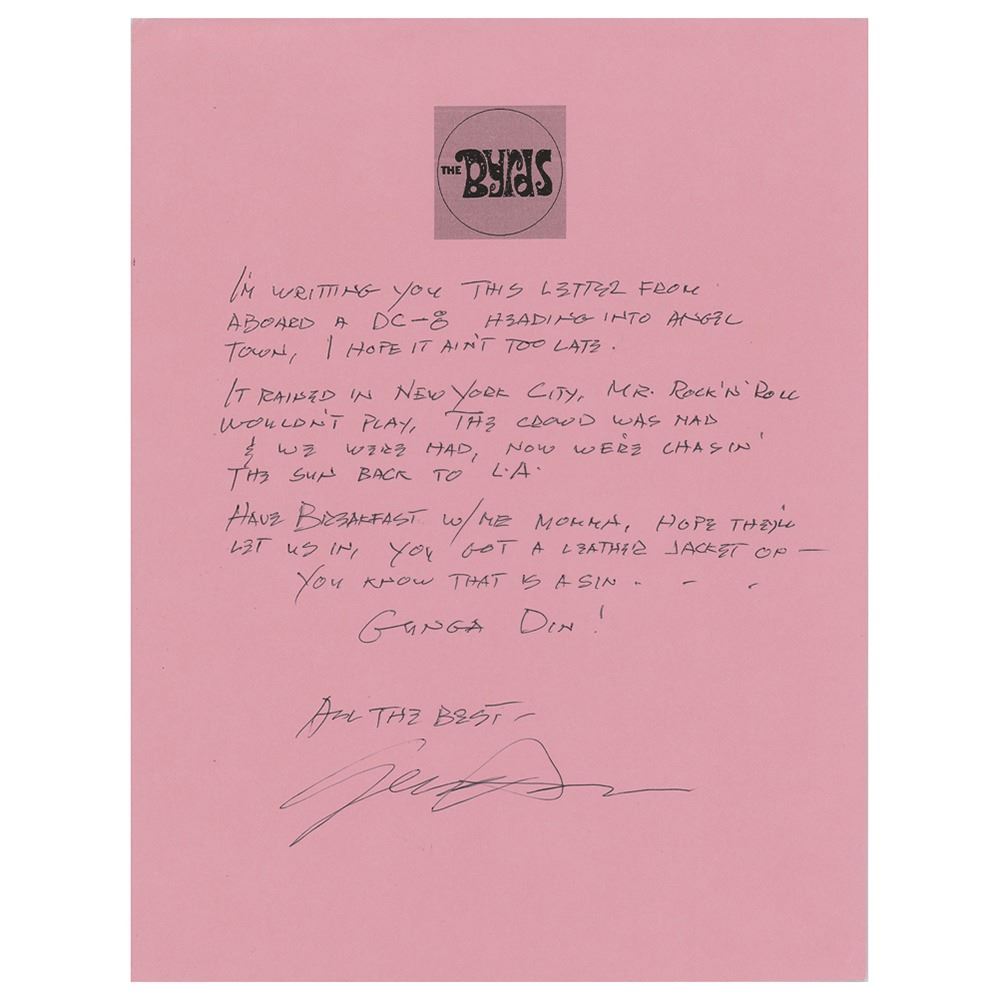 THE BYRDS
I'M WRITTING YOU THIS LETTER FROM
ABOARD A DC-8 HEADING INTO ANGEL
TOWN, I HOPE IT AIN'T TOO LATE.
IT RAINED IN NEW YORK CITY, MR. ROCK'N'ROLL
WOULDN'T PLAY, THE CROWD WAS MAD
& WE WERE HAD, NOW WERE CHASIN'
THE SUN BACK TO L.A.
HAVE BREAKFAST W/ME MOMMA, HOPE THEY'LL
LET US IN, YOU GOT A LEATHER JACKET ON —
YOU KNOW THAT IS A SIN . - -
GUNGA DIN!
ALL THE BEST -